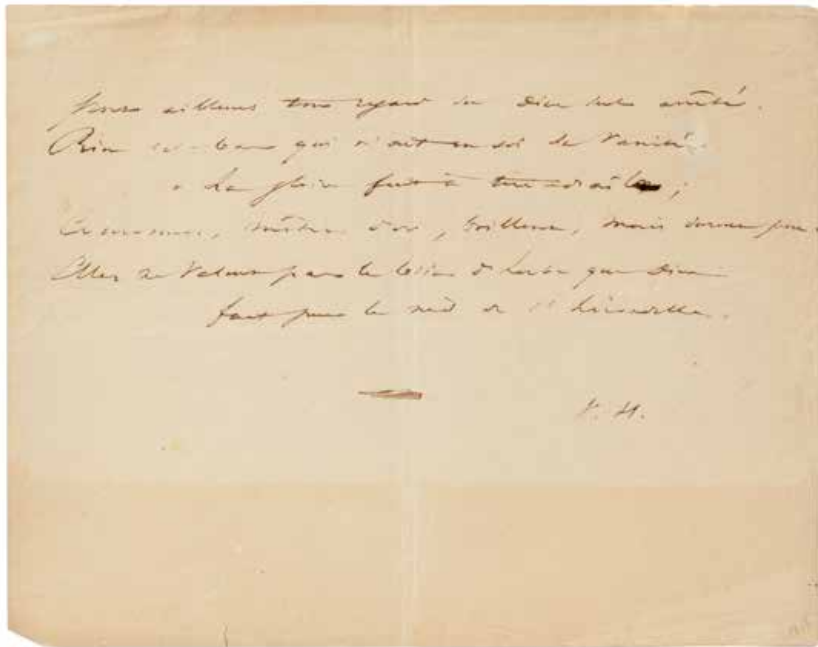 ailleurs ton regard sur Dieu seul arrêté.
Rien ici-bas qui n'ait en soi sa vanité.
La gloire fuit à tire-d'aile ;
Couronnes, mitres d'or, brillent, mais durent peu.
Elles ne valent pas le brin d'herbe que Dieu
fait pour le nid de l'hirondelle.
V. H.